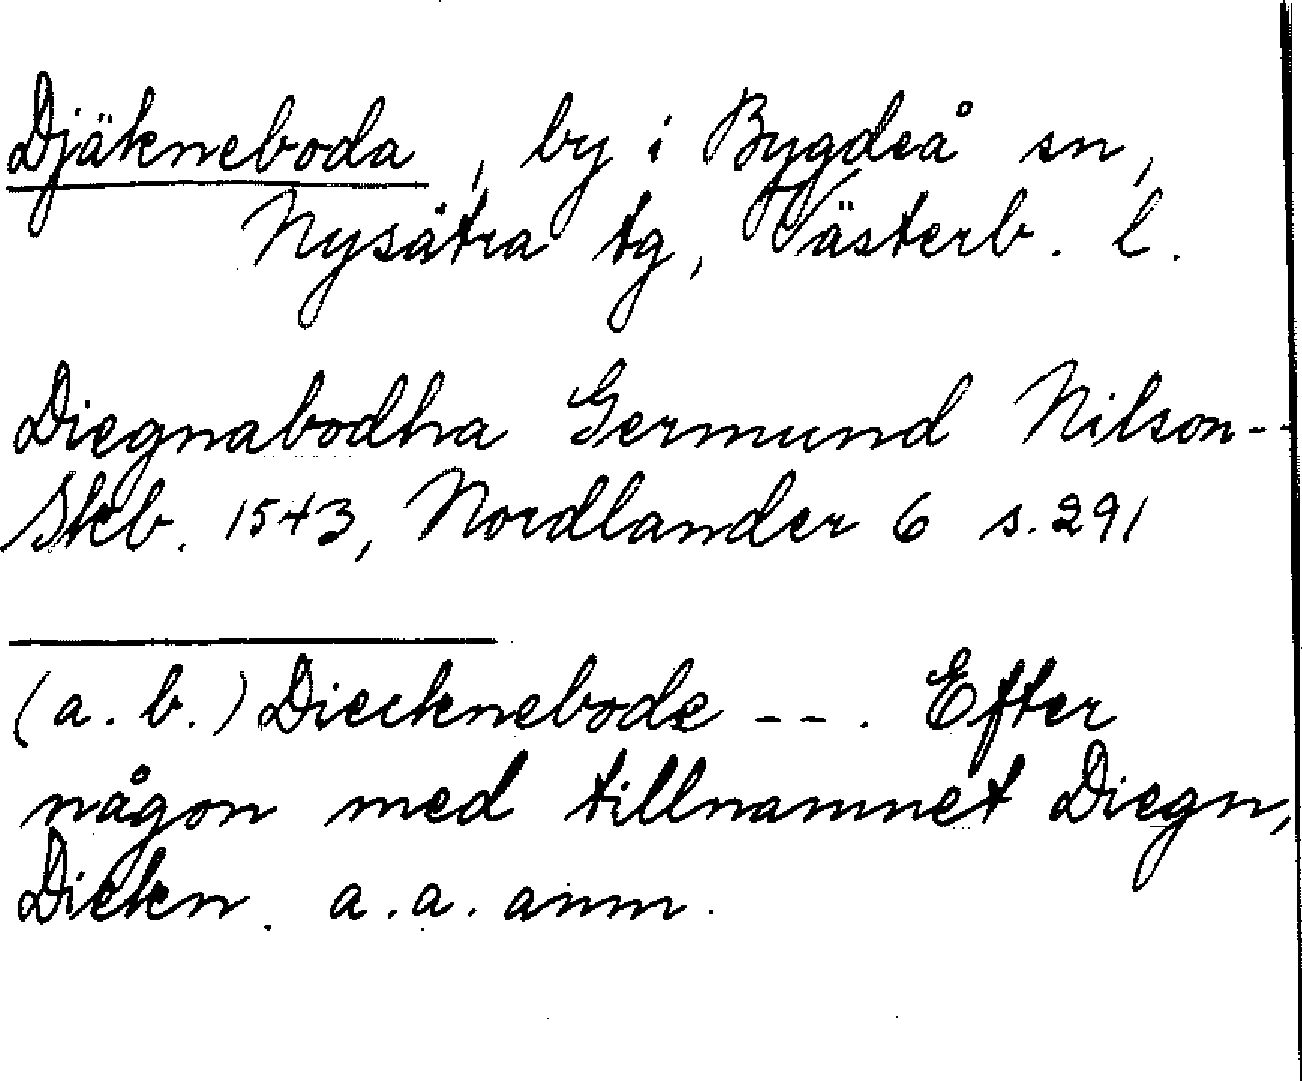 Djäkneboda, by i Bygdeå sn,
Nysätra tg, Västerb. l.
Diegnabodha Germund Nilson--
Skb. 1543, Nordlander 6 s. 291
(a. b.) Diecknebode --. Efter
någon med tillnamnet Diegn,
Diekn. a. a. anm.